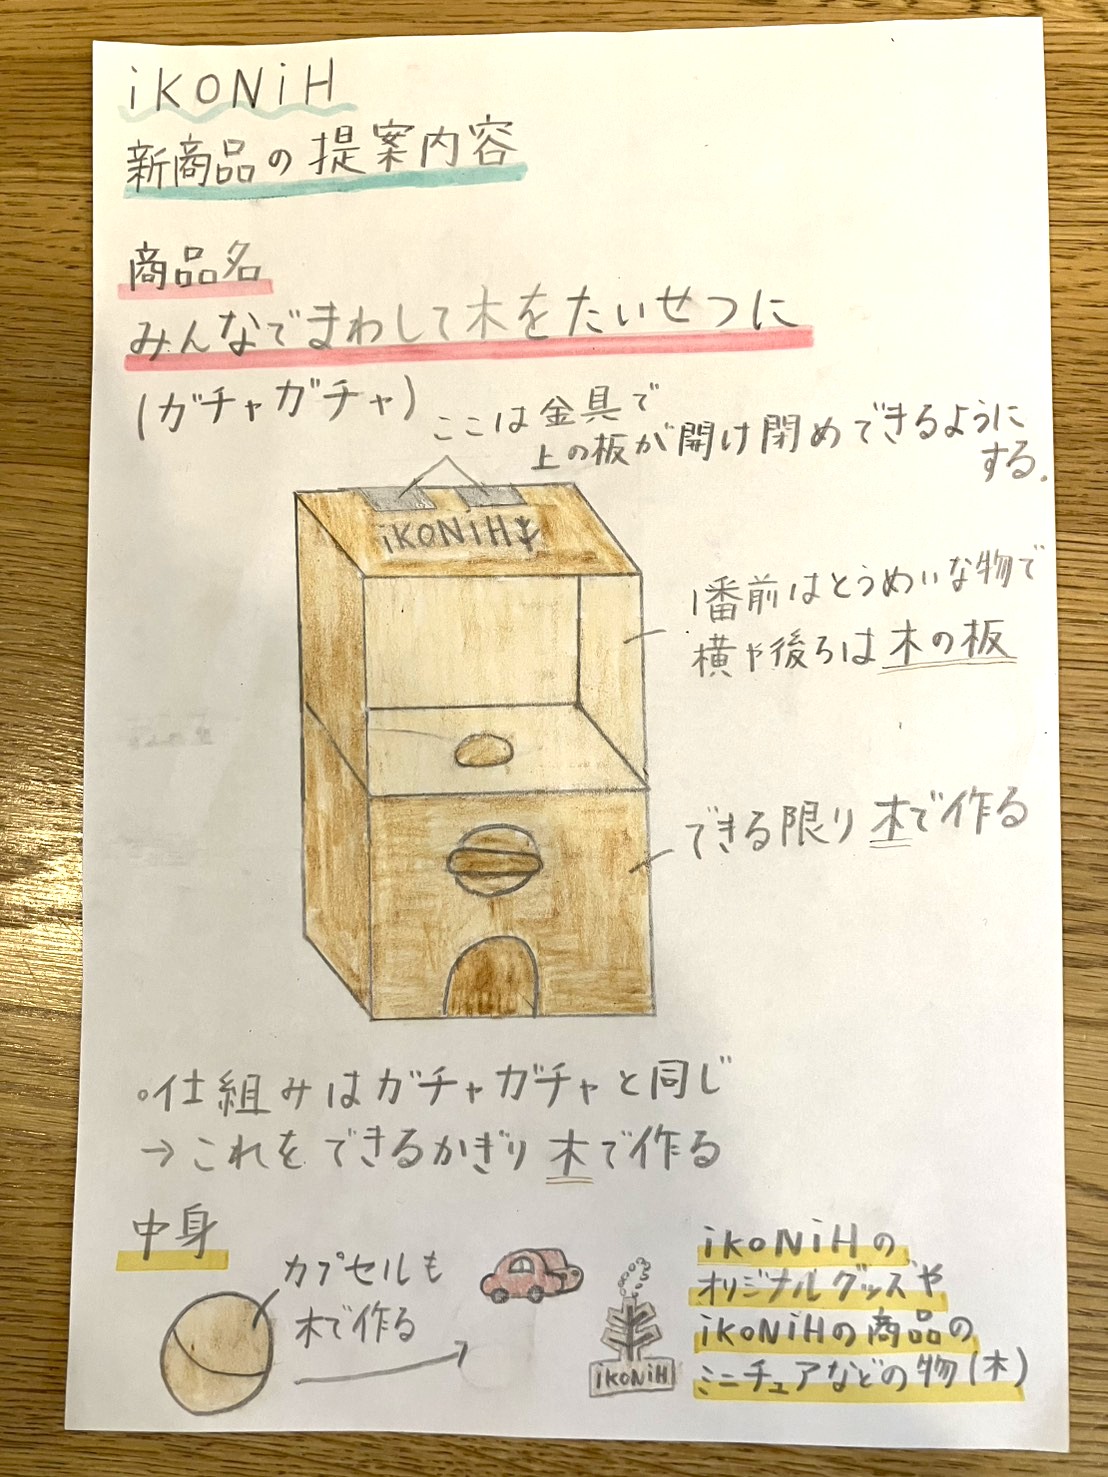 iKONiH
新商品の提案内容
商品名
みんなでまわして木をたいせつに
(ガチャガチャ)
ここは金具で
上の板が開け閉めできるように
する.
iKONiH
1番前はとうめいな物で
横や後ろは木の板
できる限り木で作る
・仕組みはガチャガチャと同じ
→これをできるかぎり木で作る
中身
カプセルも
木で作る
iKONiH
iKONiHの
オリジナルグッズや
iKONiHの商品の
ミニチュアなどの物(木)